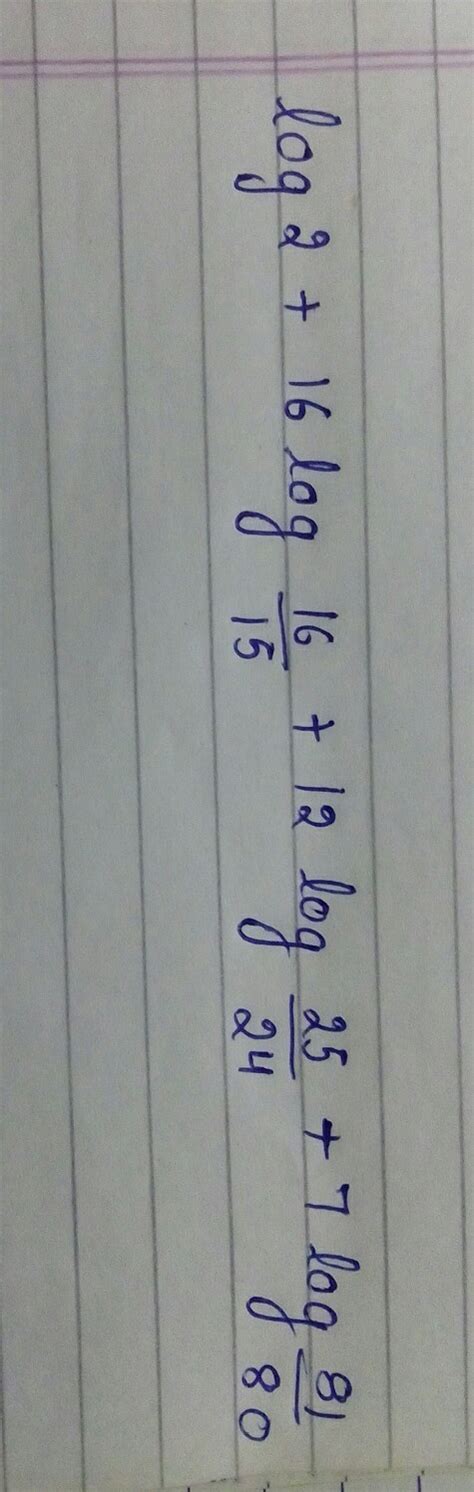 log 2 + 16 log 16/15 + 12 log 25/24 + 7 log 81/80